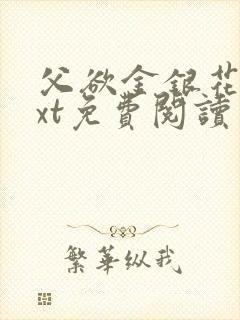 父欲金銀花
xt免費閱讀
繁華纵我